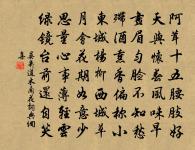 阿茸十五腰肢好
天與懷春風味早
畫眉勻臉不知愁
殢酒熏香偏稱小
東城楊柳西城草
月會花期如意少
思量心事薄輕雲
綠鏡台前還自笑
晏幾道木蘭花詞典網